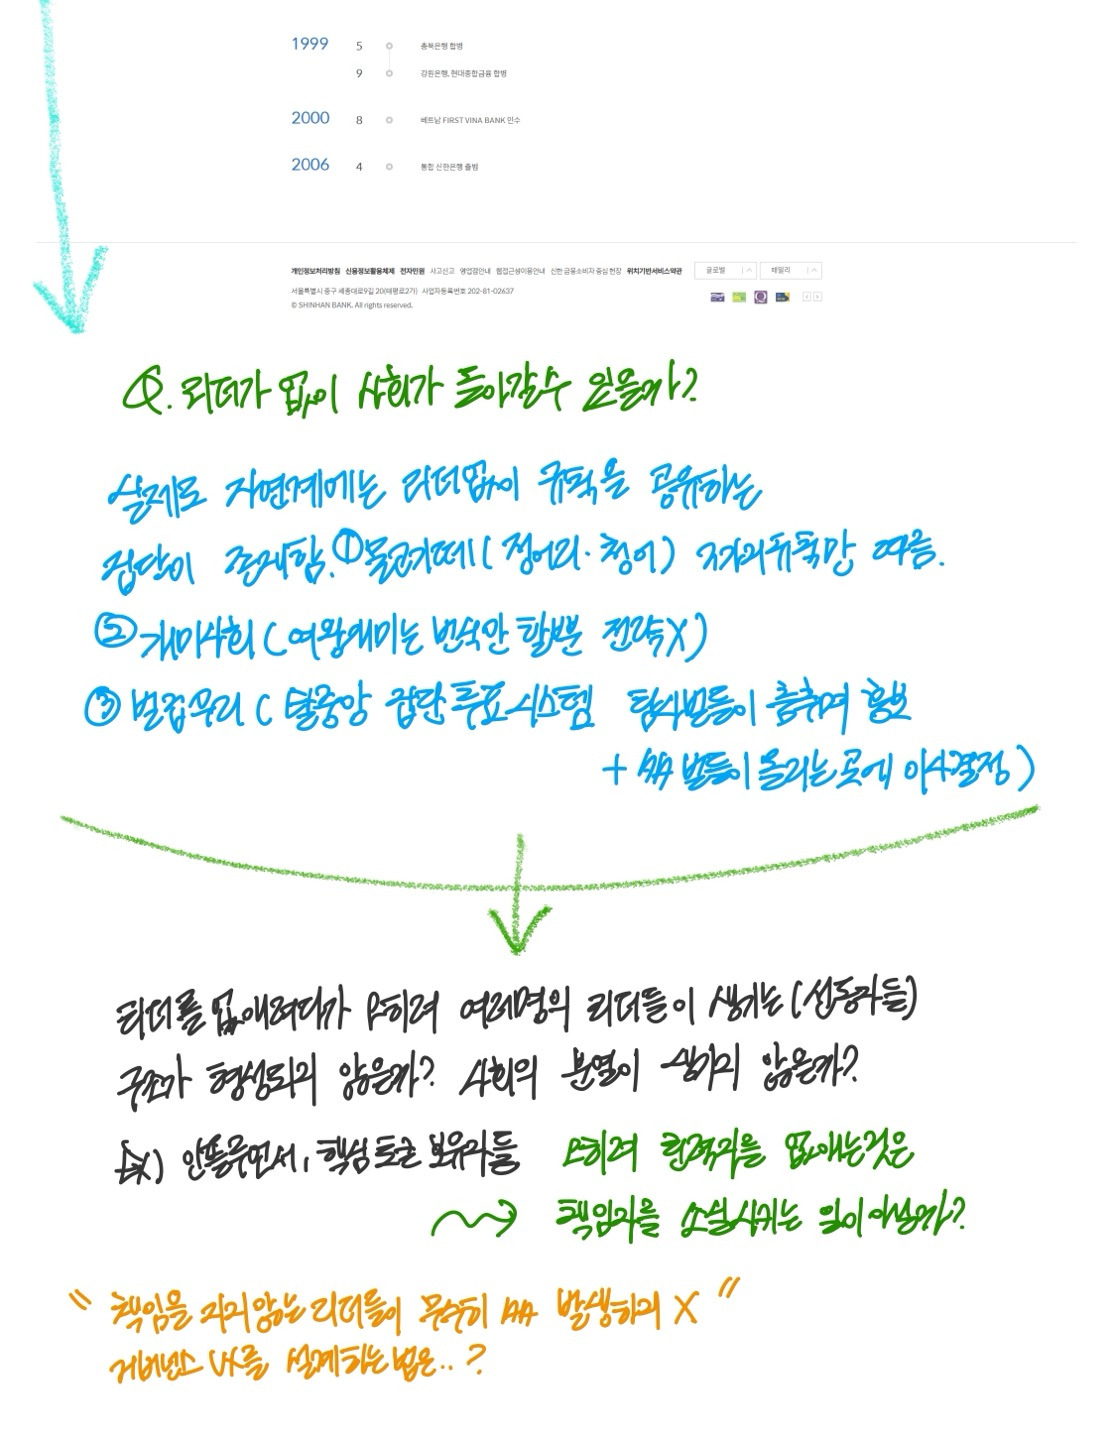 1999 5 충북은행 합병
9 강원은행, 현대종합금융 합병
2000 8 베트남 FIRST VINA BANK 인수
2006 4 통합 신한은행 출범
개인정보처리방침 신용정보활용체제 전자민원 사고신고 영업점안내 웹접근성이용안내 신한 금융소비자 중심 헌장 위치기반서비스약관 글로벌 패밀리
서울특별시 중구 세종대로9길 20(태평로2가) 사업자등록번호 202-81-02637
© SHINHAN BANK. All rights reserved.
Q. 리더가 없이 사회가 돌아갈수 있을까?
실제로 자연계에는 리더없이 규칙을 공유하는
집단이 존재함. ① 물고기떼 (정어리·청어)
② 개미사회 (여왕개미는 번식만 할뿐 전략X)
③ 벌집무리 ( 탈중앙 집단투표시스템 탐사벌들이 춤추며 홍보
+ 벌들이 몰리는 곳에 의사결정 )
리더를 없애려다가 오히려 여러명의 리더들이 생기는 (선동자들)
구조가 형성되지 않은가? 사회의 분열이 생기지 않은가?
Ex) 핵심 토큰 보유자들 오히려 권력자를 없애는것은
책임자를 소실시키는 일이 아닐까?
" 책임을 지지않는 리더들이 무수히 발생하지 X "
거버넌스 UX를 설계하는 법은.. ?